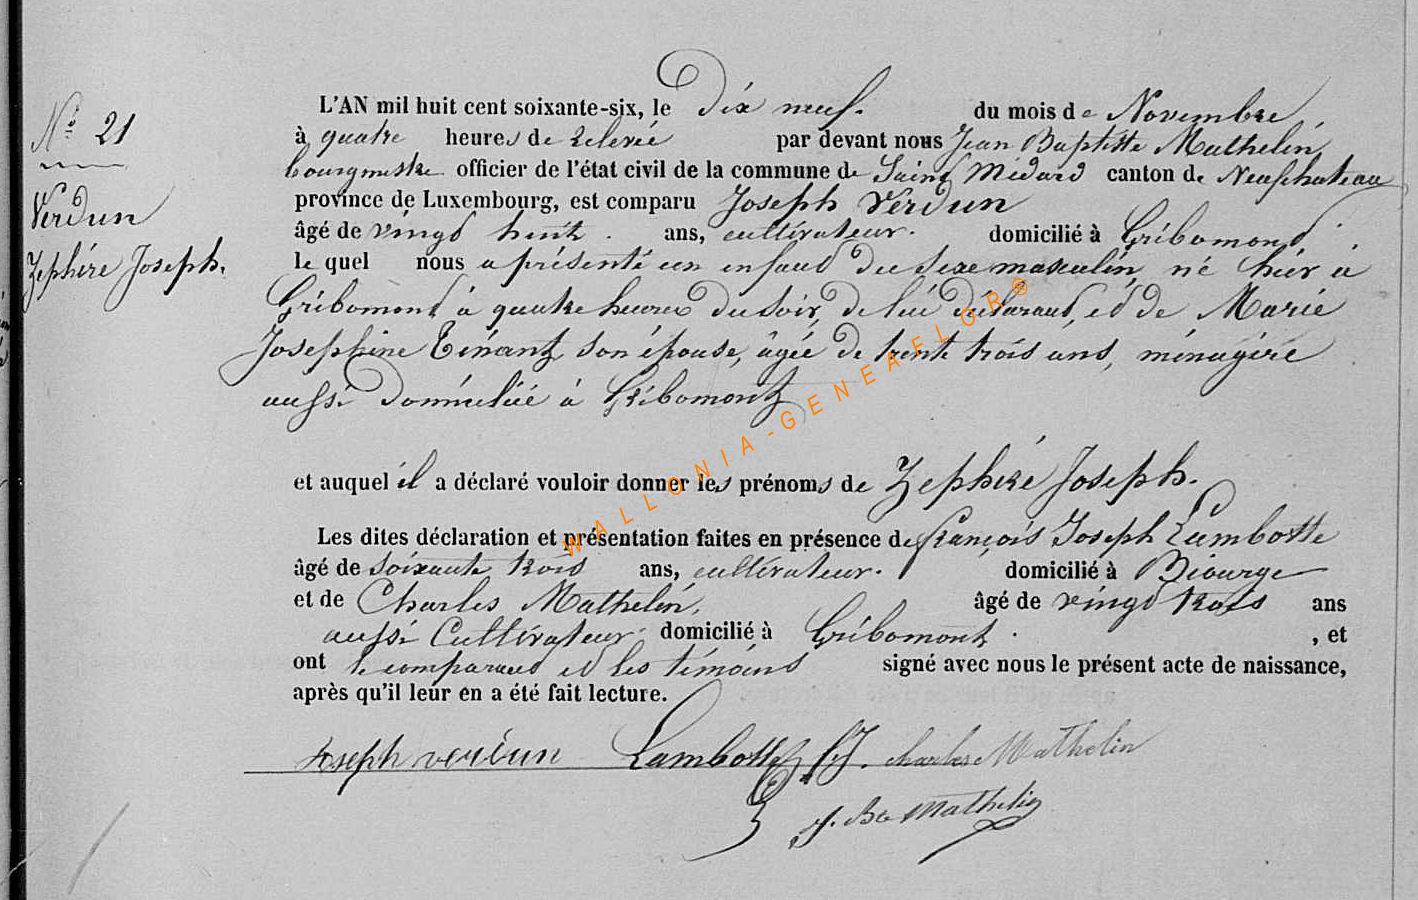 N° 21
Verdun
Zephire Joseph.
L'AN mil huit cent soixante-six, le Dix neuf. du mois de Novembre,
à quatre heures de relevée par devant nous Jean Baptiste Mathelin,
bourgmestre officier de l'état civil de la commune de Saint Médard canton de Neufchateau
province de Luxembourg, est comparu Joseph Verdun
âgé de vingt huit ans, cultivateur. domicilié à Gribomont,
le quel nous a présenté un enfant du sexe masculin, né hier a
Gribomont à quatre heures du soir, de lui déclarant, et de Marie
Josephine Tinant son épouse, âgée de trente trois ans, ménagère
aussi domiciliée à Gribomont
et auquel il a déclaré vouloir donner les prénoms de Zephire Joseph.
Les dites déclaration et présentation faites en présence de françois Joseph Lambotte
âgé de soixante trois ans, cultivateur. domicilié à Biourge
et de Charles Mathelin, âgé de vingt trois ans
aussi Cultivateur domicilié à Gribomont. , et
ont le comparant et les témoins signé avec nous le présent acte de naissance,
après qu'il leur en a été fait lecture.
Joseph verdun Lambotte f.J. charles Mathelin
J. Bte Mathelin
WALLONIA-GENEAFLOR®